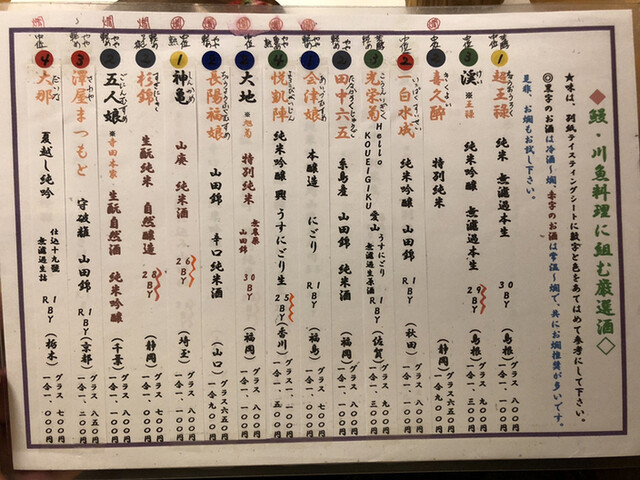 ◆鰻・川魚料理に組む厳選酒◇
★味は、別紙テイスティングシートに数字と色をあてはめて参考にして下さい。
◎黒字のお酒は冷酒〜燗、赤字のお酒は常温〜燗で、共にお燗推奨が多いです。
是非、お燗もお試し下さい。
1 超王禄 純米 無濾過本生 30BY (島根) グラス 八〇〇円 一合一、一〇〇円
3 渓 ※王禄 純米吟醸 無濾過本生 29BY (島根) グラス 八〇〇円
2 喜人酔 特別純米 (静岡) グラス六五〇円 一合 九〇〇円
2 一白水成 純米吟醸 R1BY (秋田) グラス 八〇〇円 一合一、一〇〇円
3 光栄菊 Hello KOUEIGIKU 愛山 うすにごり 無濾過生原酒 R1BY (佐賀) グラス 九〇〇円
2 田中六五 糸島産 山田錦 純米酒 (福岡) グラス 八〇〇円 一合一、一〇〇円
1 会津娘 本醸造 にごり R1BY (福島) グラス 七〇〇円 一合一、〇〇〇円
4 悦凱陣 純米吟醸 興 うすにごり生 25BY (香川)
2 大地 ※旭菊 特別純米 無農薬 山田錦 30BY (福岡) グラス 八〇〇円 一合一、一〇〇円
2 長陽福娘 山田錦 辛口純米酒 (山口) グラス六五〇円 一合 九〇〇円
1 神亀 山廃 純米酒 26BY (埼玉) グラス 八〇〇円 一合一、一〇〇円
2 杉錦 生酛純米 自然醸造 28BY (静岡) グラス 七〇〇円 一合一、〇〇〇円
2 五人娘 ※寺田本家 生酛自然酒 純米吟醸 (千葉) グラス 八〇〇円 一合一、一〇〇円
3 澤屋まつもと 守破離 山田錦 R1BY (京都) グラス 八五〇円 一合一、二〇〇円
4 大那 夏越し純吟 仕込十九號 無濾過生詰 R1BY (栃木) グラス 七〇〇円 一合一、〇〇〇円